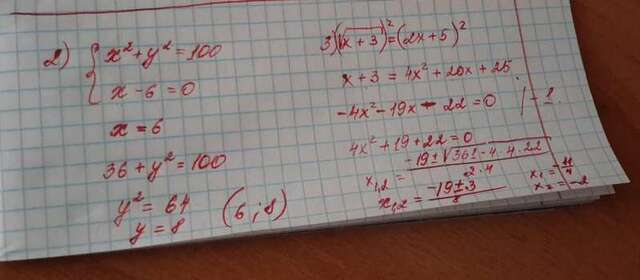 2) { x² + y² = 100
x - 6 = 0
x = 6
36 + y² = 100
y² = 64
y = 8
(6 ; 8)
3) (√x + 3)² = (2x + 5)²
x + 3 = 4x² + 20x + 25
-4x² - 19x - 22 = 0 / -1
4x² + 19 + 22 = 0
x₁,₂ = (-19 ± √361 - 4 · 4 · 22) / (2 · 4)
x₁,₂ = (-19 ± 3) / 8
x₁ = -11/4
x₂ = -2